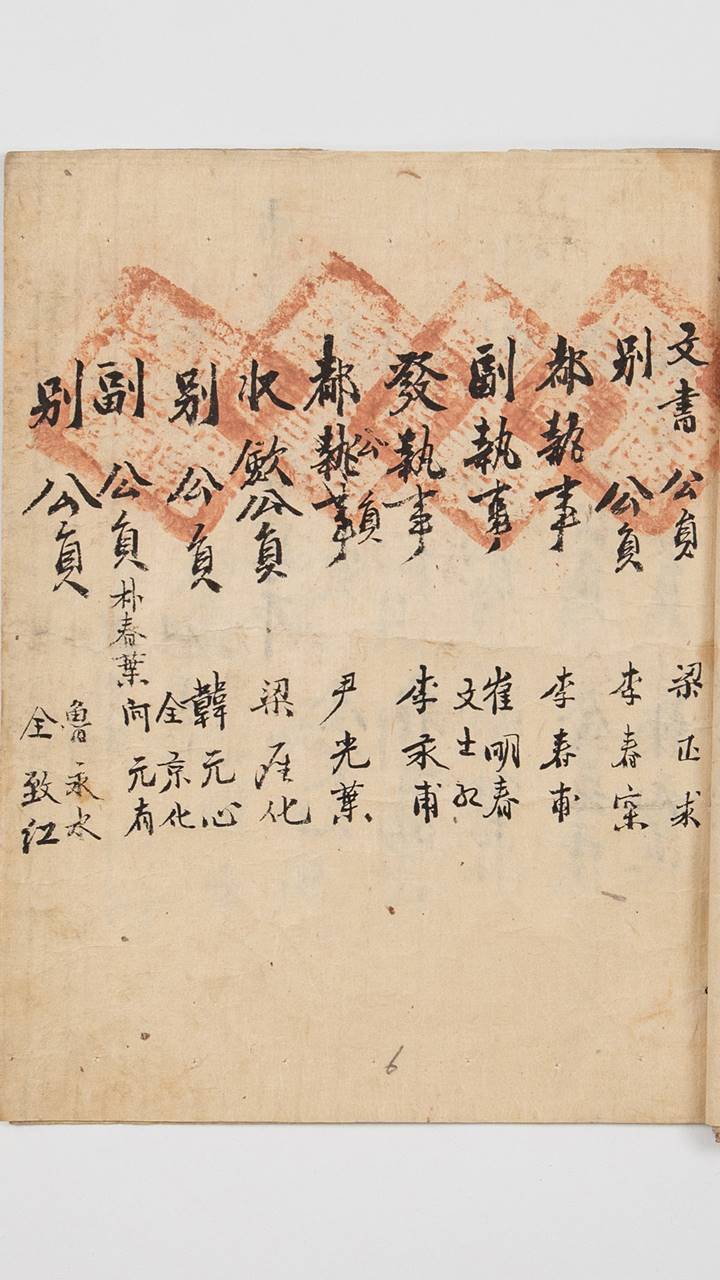 文書公員 梁正求
別公員 李春宲
都執事 李春甫
副執事 崔明春 文士
發執事 李永甫
都執事 公員 尹光葉
收斂公員 梁 化
別公員 韓元心 全京化
副公員 朴春葉 向元有
別公員 魯永水 全致江
6